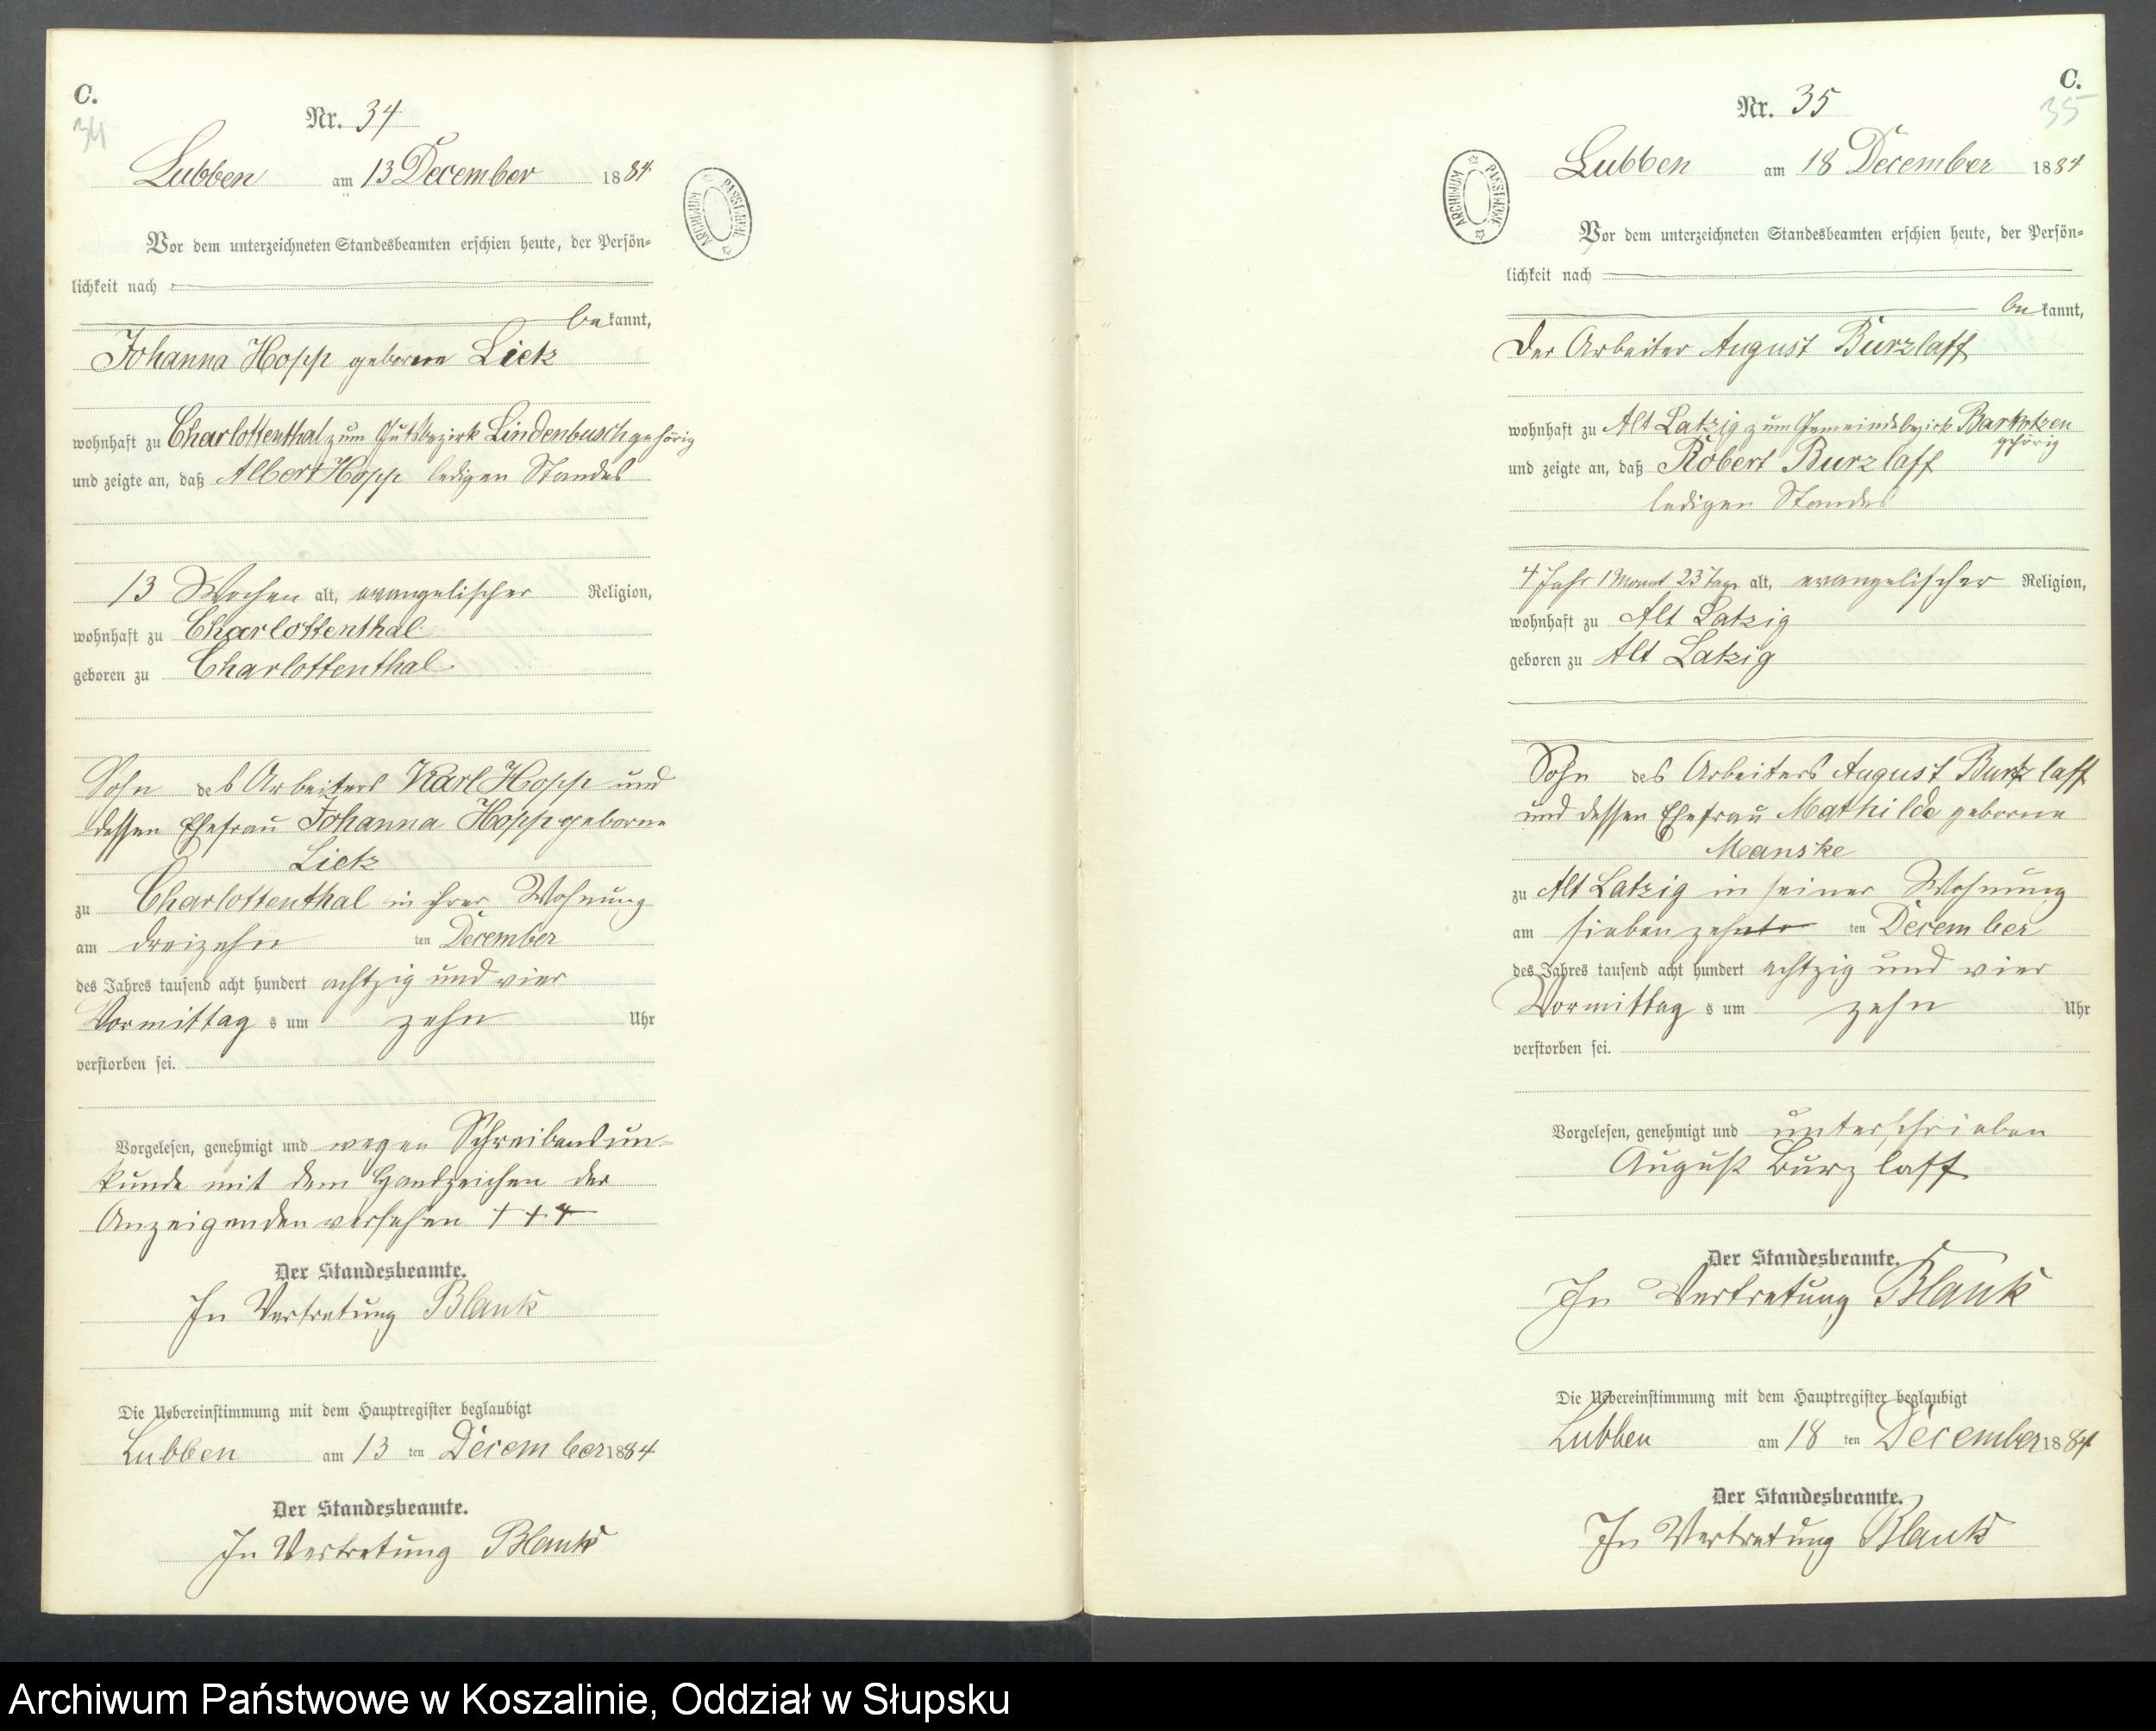 C.
34
Nr. 34
Lubben am 13 December 1884
Vor dem unterzeichneten Standesbeamten erschien heute, der Persön=
lichkeit nach
bekannt,
Johanna Hopp geborene Lietz
wohnhaft zu Charlottenthal zum Gutsbezirk Lindenbusch gehörig
und zeigte an, daß Albert Hopp ledigen Standes
13 Wochen alt, evangelischer Religion,
wohnhaft zu Charlottenthal
geboren zu Charlottenthal
Sohn des Arbeiters Karl Hopp und
dessen Ehefrau Johanna Hopp geborne
Lietz
zu Charlottenthal in ihrer Wohnung
am dreizehn ten December
des Jahres tausend acht hundert achtzig und vier
Vormittag s um zehn Uhr
verstorben sei.
Vorgelesen, genehmigt und wegen Schreibensun-
kunde mit dem Handzeichen der
Anzeigenden versehen +++
Der Standesbeamte.
In Vertretung Blank
Die Uebereinstimmung mit dem Hauptregister beglaubigt
Lubben am 13 ten December 1884
Der Standesbeamte.
In Vertretung Blank
ARCHIWUM PAŃSTWOWE
C.
35
Nr. 35
Lubben am 18 December 1884
Vor dem unterzeichneten Standesbeamten erschien heute, der Persön=
lichkeit nach
bekannt,
Der Arbeiter August Burzlaff
wohnhaft zu Alt Latzig zum Gemeindebezirk Barkotzen
gehörig
und zeigte an, daß Robert Burzlaff
ledigen Standes
4 Jahr 1 Monat 23 Tage alt, evangelischer Religion,
wohnhaft zu Alt Latzig
geboren zu Alt Latzig
Sohn des Arbeiters August Burzlaff
und dessen Ehefrau Mathilde geborne
Manske
zu Alt Latzig in seiner Wohnung
am siebenzehnte ten December
des Jahres tausend acht hundert achtzig und vier
Vormittag s um zehn Uhr
verstorben sei.
Vorgelesen, genehmigt und unterschrieben
August Burzlaff
Der Standesbeamte.
In Vertretung Blank
Die Uebereinstimmung mit dem Hauptregister beglaubigt
Lubben am 18 ten December 1884
Der Standesbeamte.
In Vertretung Blank
ARCHIWUM PAŃSTWOWE
Archiwum Państwowe w Koszalinie, Oddział w Słupsku